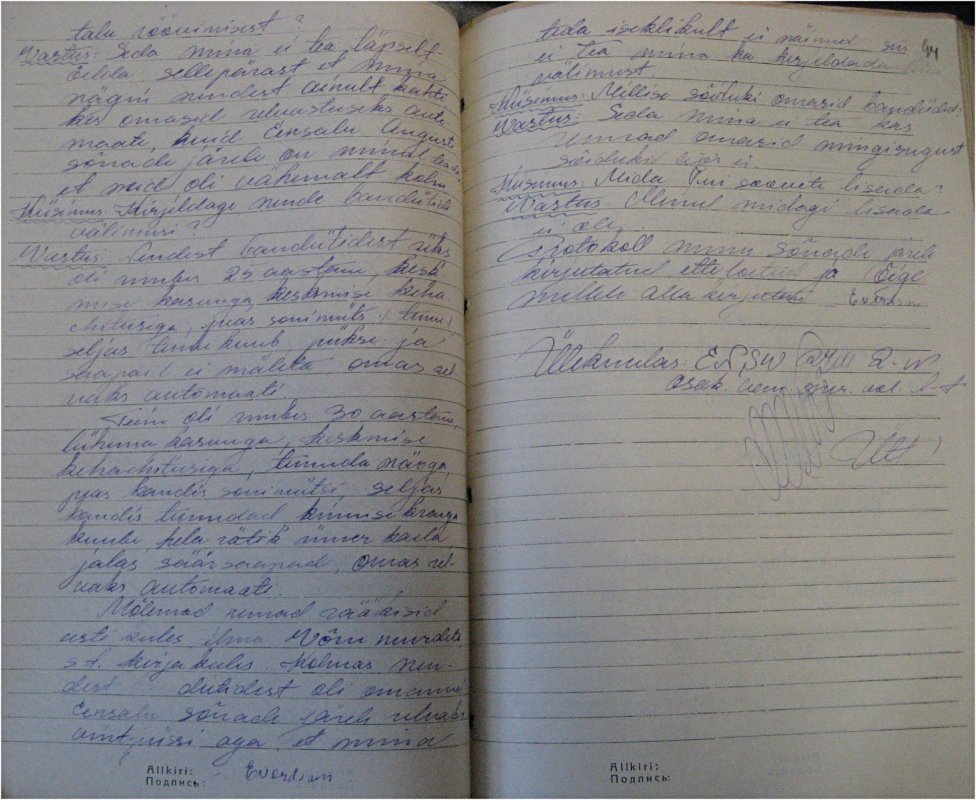 talu röövimisest?
Vastus: Seda mina ei tea täpselt
öelda, sellepärast et mina
nägin nendest ainult kahte
kes omasid relvastuseks auto
maate, kuid Eensalu Augusti
sõnade järele on minul teada
et neid oli vähemalt kolm.
Küsimus: Kirjeldage nende bandiitide
välimusi?
Vastus: Nendest bandiitidest üks
oli umbes 25 aastane, kesk
mise kasvuga, keskmise keha
ehitusega, peas sonimüts
seljas tume kuub pükse ja
saapaid ei mäleta omas rel
vaks automaati
Teine oli umbes 30 aastane,
lühema kasvuga, keskmise
kehaehitusega, tumeda näoga,
peas kandis sonimütsi, seljas
kandis tumedat
kuube, hele rätik ümber kaela,
jalas säärsaapad, omas rel
vaks automaati.
Mõlemad nemad rääkisid
eesti keeles ilma Võru murdeta
s.t. kirjakeeles. Kolmas nen-
dest oli omanud
Eensalu sõnade järele relvaks
püssi aga, et mina
Allkiri:
Подпись:
teda isiklikult ei näinud siis
ei tea mina ka kirjeldada tema
välimust.
Küsimus: Millise sõiduki omasid bandiidid?
Vastus: Seda mina ei tea kas
nemad omasid mingisugust
sõidukid või ei.
Küsimus: Mida Teie soovite lisada?
Vastus: Minul midagi lisada
ei ole.
Protokoll minu sõnade järele
kirjutatud ette loetud ja õige
millele alla kirjutan
Ülekuulas:
Allkiri:
Подпись: